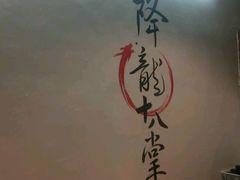 降龍十八掌